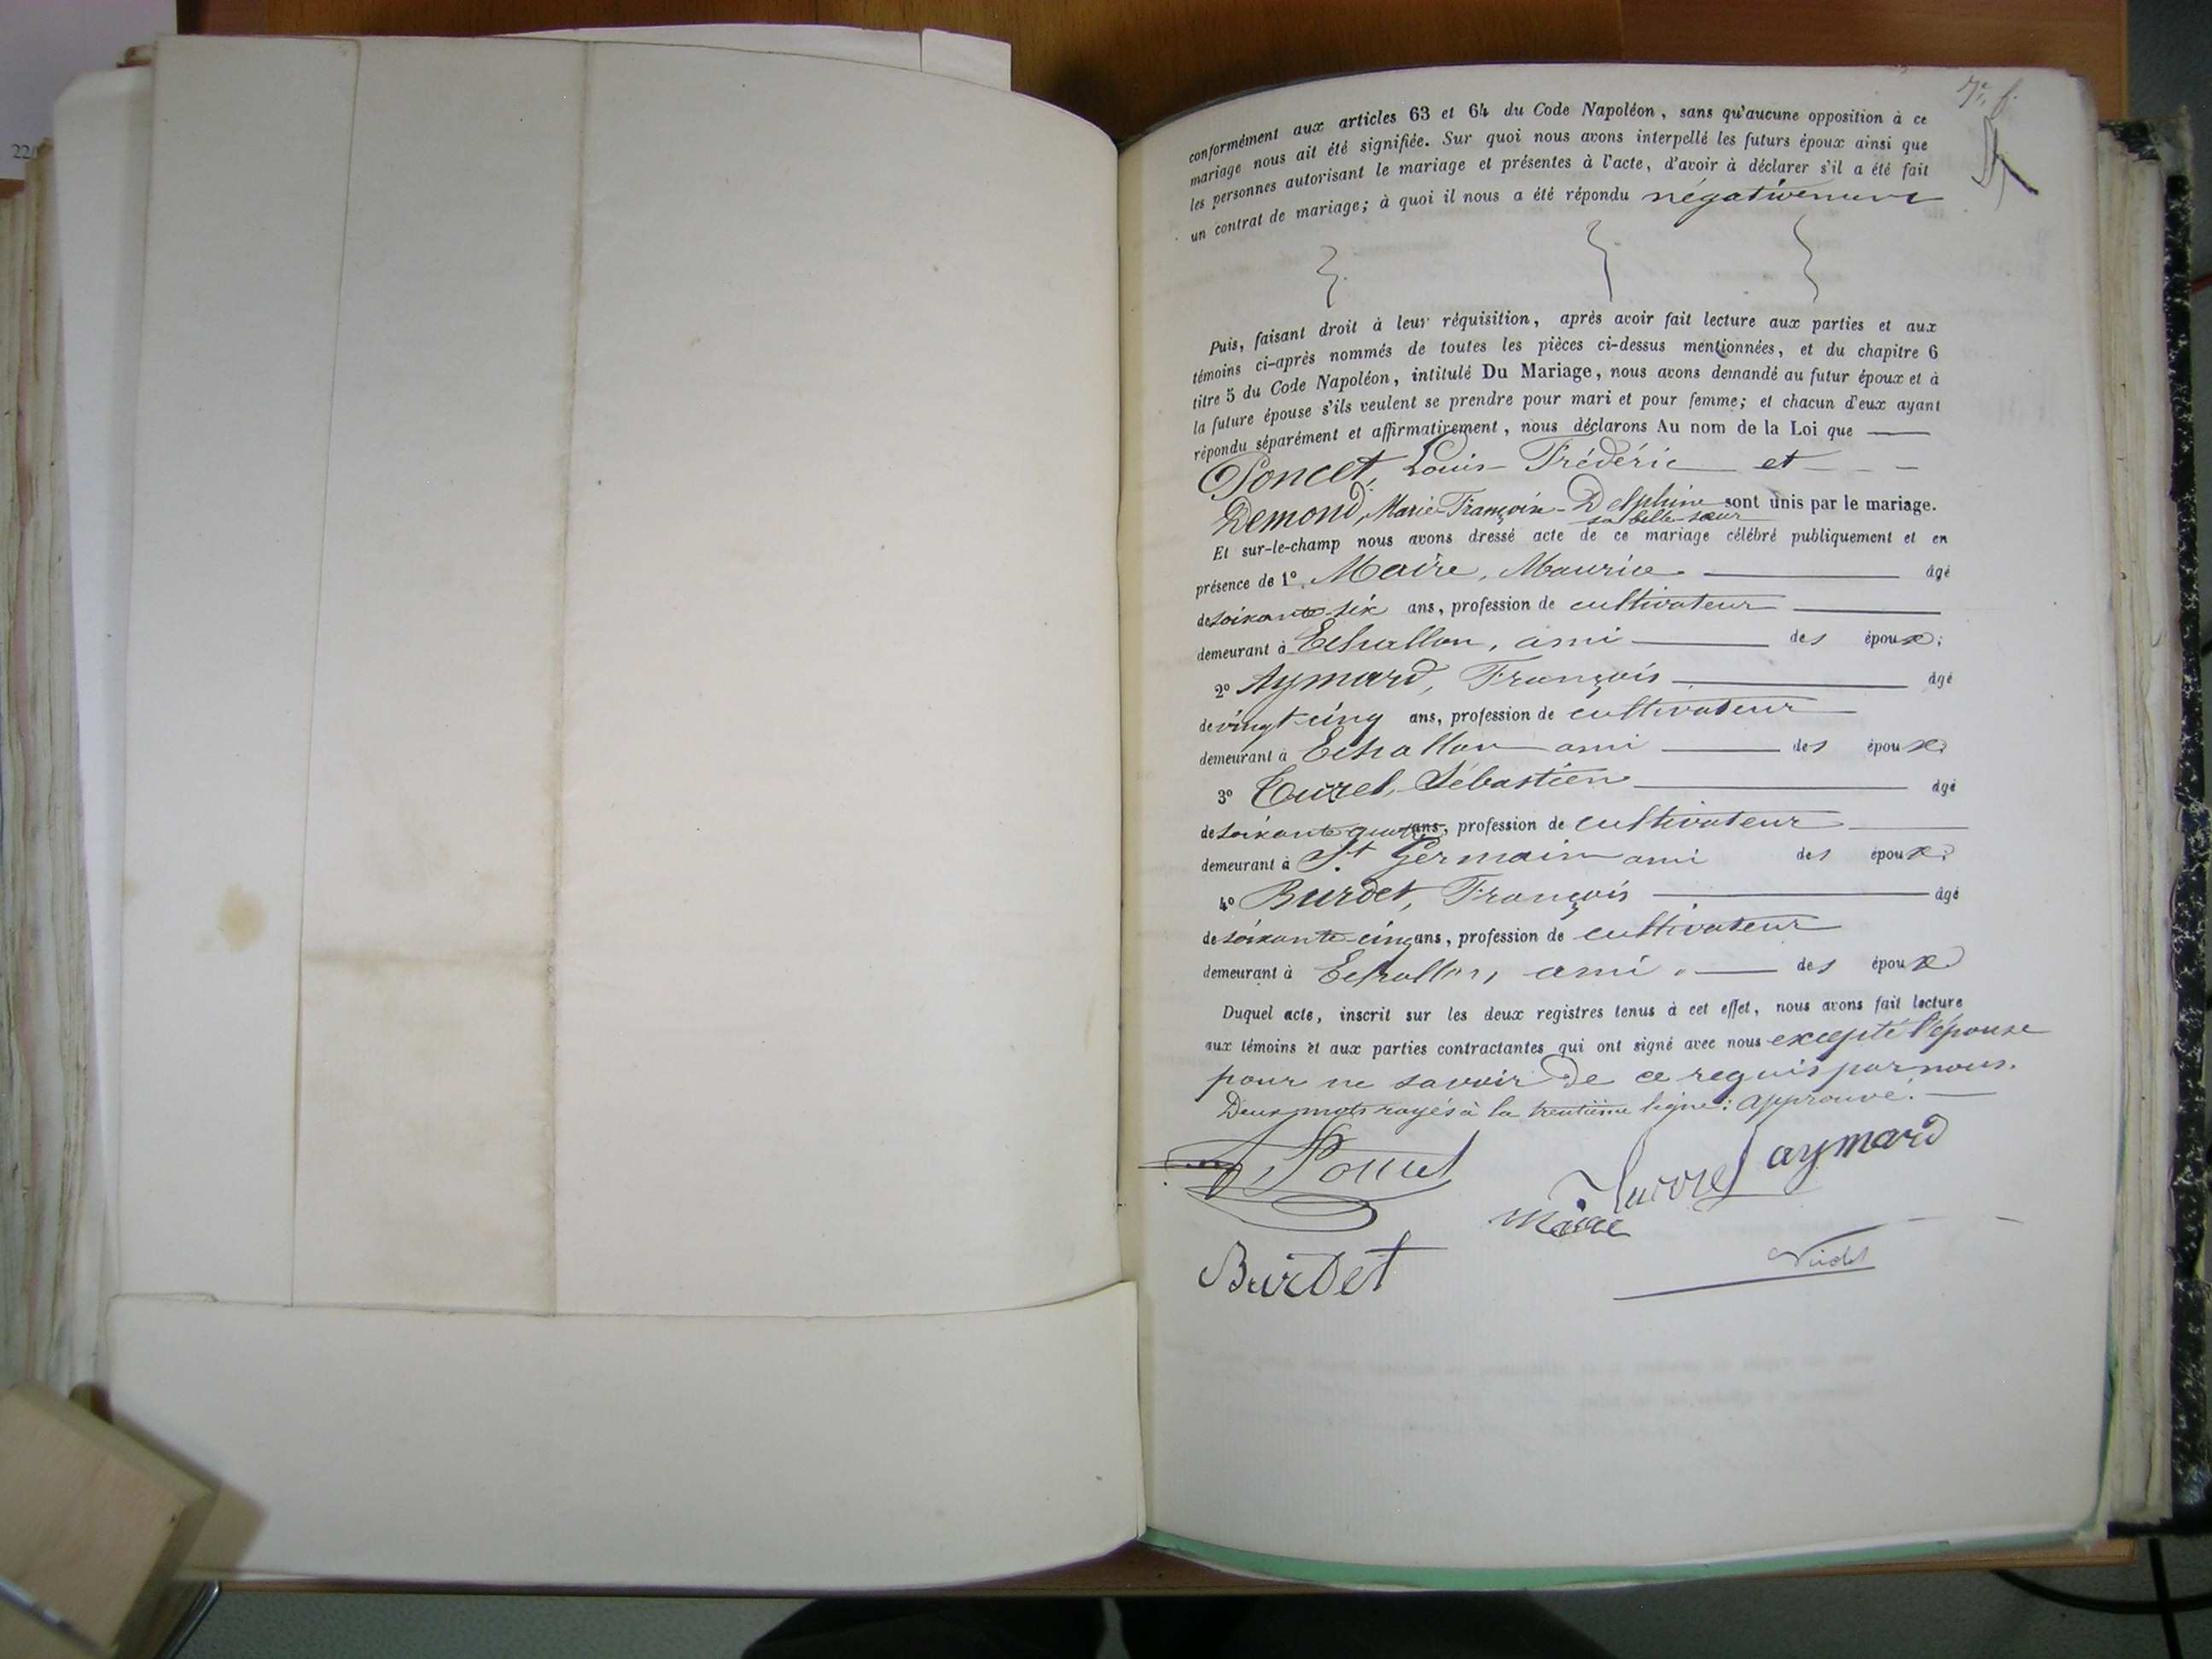 22
7e f.
conformément aux articles 63 et 64 du Code Napoléon, sans qu'aucune opposition à ce
mariage nous ait été signifiée. Sur quoi nous avons interpellé les futurs époux ainsi que
les personnes autorisant le mariage et présentes à l'acte, d'avoir à déclarer s'il a été fait
un contrat de mariage; à quoi il nous a été répondu négativement
Puis, faisant droit à leur réquisition, après avoir fait lecture aux parties et aux
témoins ci-après nommés de toutes les pièces ci-dessus mentionnées, et du chapitre 6
titre 5 du Code Napoléon, intitulé Du Mariage, nous avons demandé au futur époux et à
la future épouse s'ils veulent se prendre pour mari et pour femme; et chacun d'eux ayant
répondu séparément et affirmativement, nous déclarons Au nom de la Loi que
Poncet, Louis-Frédéric et
Demond, Marie-Françoise-Delphine sont unis par le mariage.
sa belle-sœur
Et sur-le-champ nous avons dressé acte de ce mariage célébré publiquement et en
présence de 1° Maire, Maurice âgé
de soixante-six ans, profession de cultivateur
demeurant à Echallon, ami des époux;
2° Aymard, François âgé
de vingt cinq ans, profession de cultivateur
demeurant à Echallon ami des époux;
3° Turrel, Sébastien âgé
de soixante quatre ans, profession de cultivateur
demeurant à St Germain ami des époux;
4° Burdet, François âgé
de soixante-cinq ans, profession de cultivateur
demeurant à Echallon, ami des époux
Duquel acte, inscrit sur les deux registres tenus à cet effet, nous avons fait lecture
aux témoins et aux parties contractantes qui ont signé avec nous excepté l'épouse
pour ne savoir de ce requis par nous.
Deux mots rayés à la trentième ligne: approuvé.
Poncet
Turrel aymard
Maire
Burdet